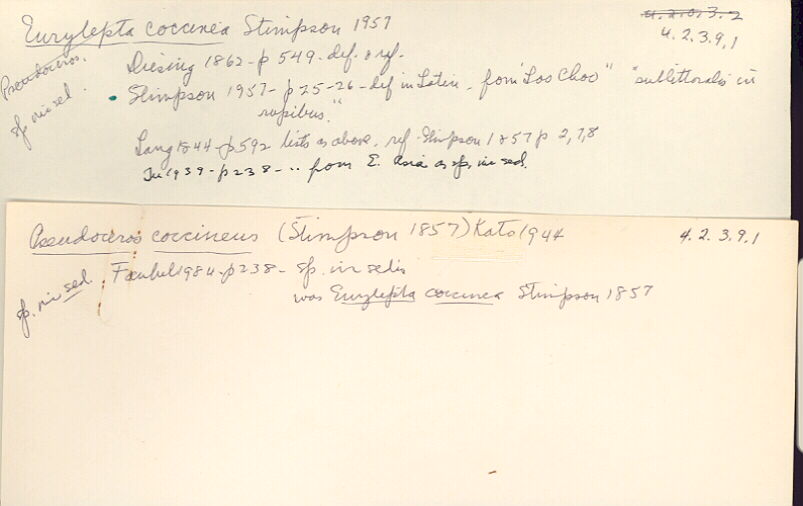 Eurylepta coccinea Stimpson 1957
4.2.0.3.2
4.2.3.9.1
Pseudoceros.
sp. in sed.
Diesing 1862 - p 549 - def. & ref.
• Stimpson 1957 - p 25-26 - def in Latin - from "Loo Choo" "sublittoralis in
rupibus."
Lang 1844 - p 592 lists as above, ref. Stimpson 1857 p 2,7,8
1939 - p 238 - .. from E. Asia as sp. in sed.
Pseudoceros coccineus (Stimpson 1857) Kato 1944
4.2.3.9.1
sp. in sed.
Faubel 1984 - p 238 - sp. in sedis
was Eurylepta coccinea Stimpson 1857